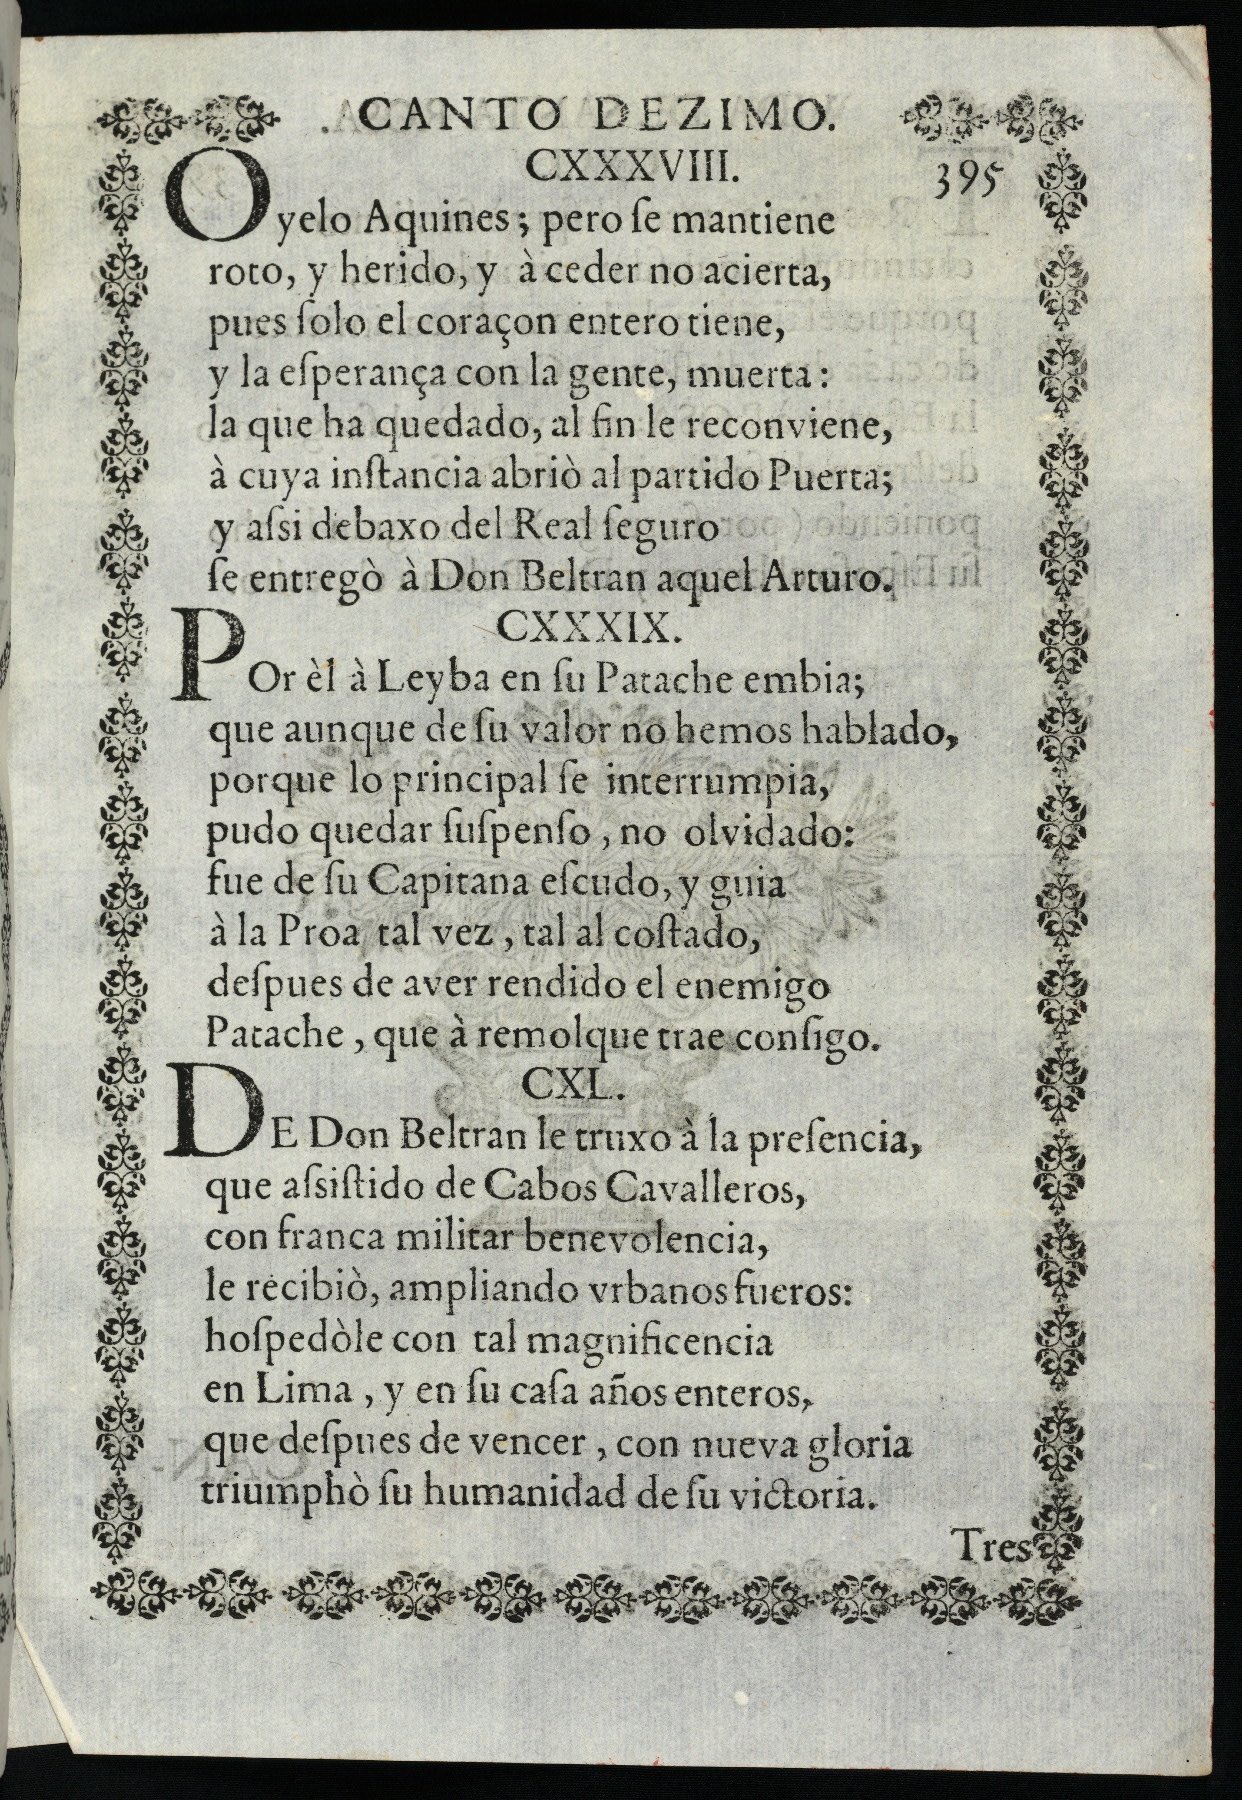 CANTO DEZIMO.
CXXXVIII.
395
Oyelo Aquines; pero ſe mantiene
roto, y herido, y à ceder no acierta,
pues ſolo el coraçon entero tiene,
y la eſperança con la gente, muerta:
la que ha quedado, al fin le reconviene,
à cuya inſtancia abriò al partido Puerta;
y aſsi debaxo del Real ſeguro
ſe entregò à Don Beltran aquel Arturo.
CXXXIX.
POr èl à Leyba en ſu Patache embia;
que aunque de ſu valor no hemos hablado,
porque lo principal ſe interrumpia,
pudo quedar ſuſpenſo, no olvidado:
fue de ſu Capitana eſcudo, y guia
à la Proa tal vez, tal al coſtado,
deſpues de aver rendido el enemigo
Patache, que à remolque trae conſigo.
CXL.
DE Don Beltran le truxo à la preſencia,
que aſsiſtido de Cabos Cavalleros,
con franca militar benevolencia,
le recibiò, ampliando vrbanos fueros:
hoſpedòle con tal magnificencia
en Lima, y en ſu caſa años enteros,
que deſpues de vencer, con nueva gloria
triumphò ſu humanidad de ſu victoria.
Tres